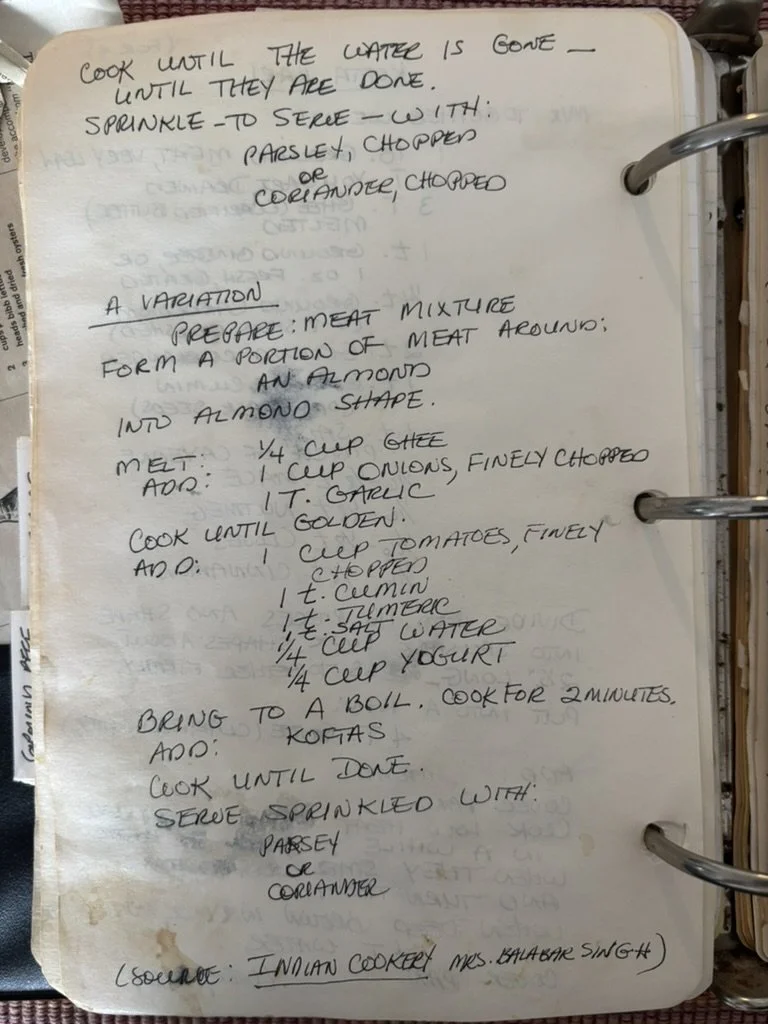 COOK UNTIL THE WATER IS GONE —
UNTIL THEY ARE DONE.
SPRINKLE - TO SERVE - WITH:
PARSLEY, CHOPPED
OR
CORIANDER, CHOPPED
A VARIATION
PREPARE: MEAT MIXTURE
FORM A PORTION OF MEAT AROUND:
AN ALMOND
INTO ALMOND SHAPE.
MELT: 1/4 CUP GHEE
ADD: 1 CUP ONIONS, FINELY CHOPPED
1 T. GARLIC
COOK UNTIL GOLDEN.
ADD: 1 CUP TOMATOES, FINELY
CHOPPED
1 t. CUMIN
1 t. TUMERIC
1 t. SALT
1/4 CUP WATER
1/4 CUP YOGURT
BRING TO A BOIL. COOK FOR 2 MINUTES.
ADD: KOFTAS
COOK UNTIL DONE.
SERVE SPRINKLED WITH:
PARSEY
OR
CORIANDER
(SOURCE: INDIAN COOKERY MRS. BALABAR SINGH)